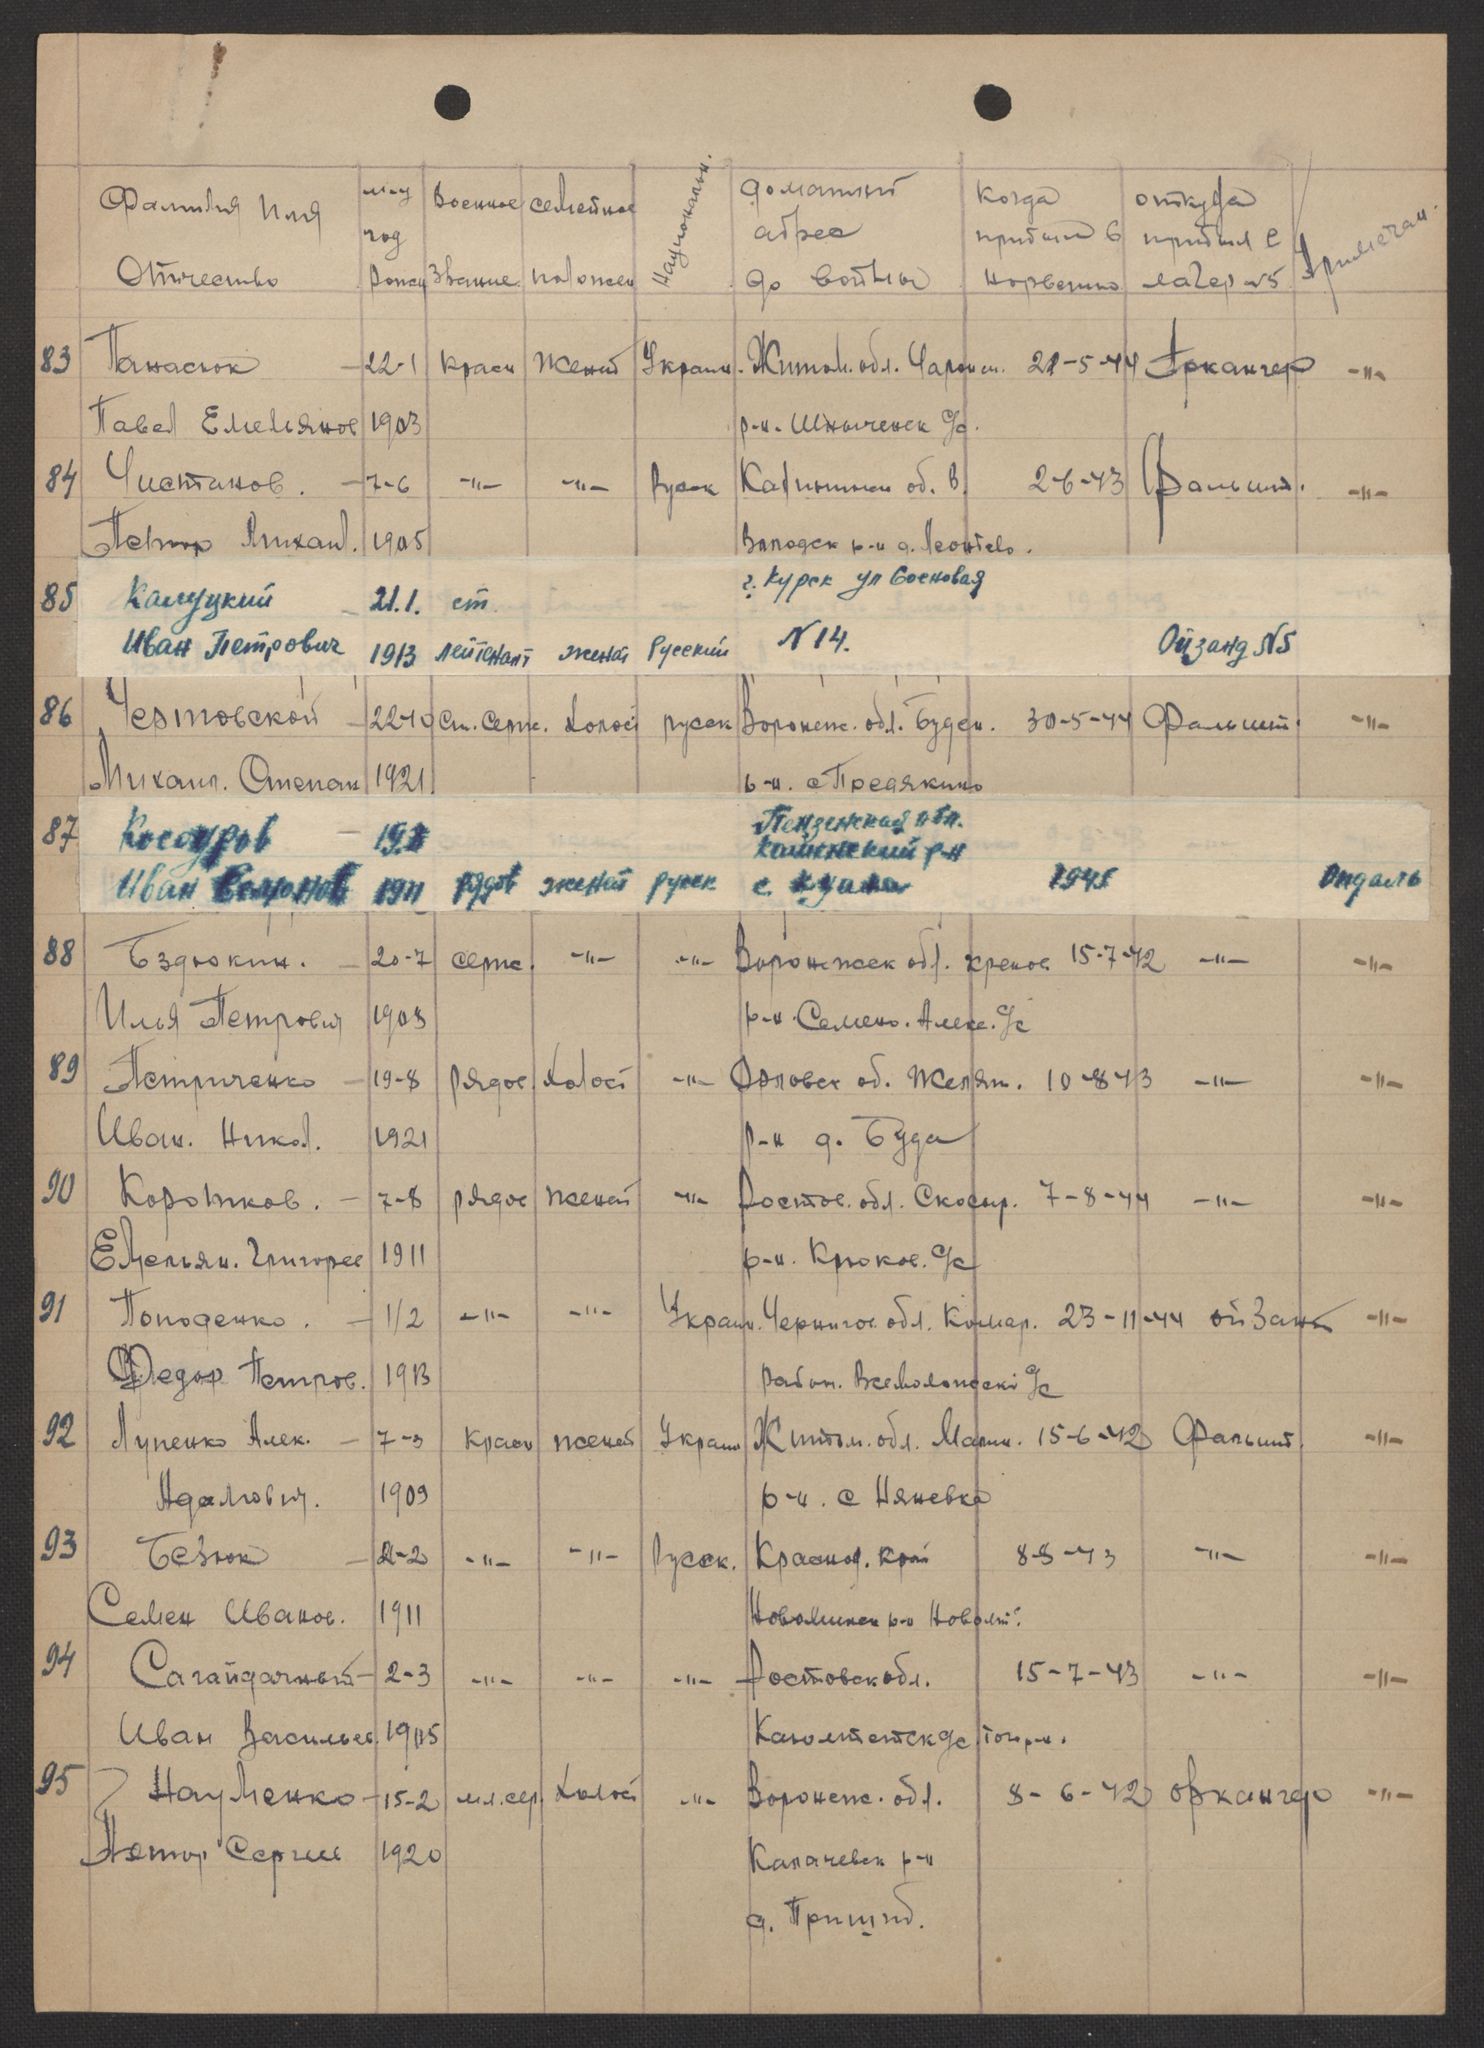 Фамилия Имя Отчество м-ц год рожд Военное Звание семейное положен Национальн. домашний адрес до войны когда прибыл в норвегию откуда прибыл в лагер №5 Примечан.
83 Панасюк – 22-1 красн женат Украин. Житом. обл. 21-5-44 Аркангер -"-
Павел Емельянов 1903 р-н. с/с.
84 Чистанов. – 7-6 -"- -"- Русск Калинин об. В. 2-6-43 Фальшт. -"-
Петр Михаил. 1905 р-н д. Леонтево.
85 Калуцкий – 21.1. ст. г. Курск ул Сосновая
Иван Петрович 1913 лейтенант женат Русский N 14. Ойзанд №5
86 Чертовской – 22-10 Ст. серж. холост русск Воронеж. обл. Буден. 30-5-44 Фальшт. -"-
Михаил. Степан 1921 р-н. с
87 – Пензенская обл.
р-н
Иван 1911 рядов женат русск с. 1945 Опдаль
88 Бздюкин. – 20-7 серж. -"- -"- Воронежск обл. хренов 15-7-42 -"- -"-
Илья Петрович 1903 р-н. Семено. Алекс. с/с
89 Петриченко – 19-8 рядов холост -"- Орловск об. 10-8-43 -"- -"-
Иван. Никол. 1921 р-н д. Буда
90 Коротков. – 7-8 рядов женат -"- Ростов. обл. Скосыр. 7-8-44 -"- -"-
Емельян. Григорев 1911 р-н. Крюков. с/с
91 Пополенко. – 1/2 -"- -"- Украин. Чернигов. обл. Комар. 23-11-44 ойЗанд -"-
Федор Петров. 1913 район. с/с
92 Лупенко Алек. – 7-3 красн женат Украин Житом. обл. Малин. 15-6-42 Фальшт. -"-
Адамович. 1909 р-н. с Няневка
93 Безюк – 2-2 -"- -"- Русск. Краснод. край 8-8-43 -"- -"-
Семен Иванов. 1911 Новоминск р-н
94 Сагайдачный – 2-3 -"- -"- -"- Ростовск обл. 15-7-43 -"- -"-
Иван Васильев. 1905 с/с
95 Науменко – 15-2 мл. сер. холост -"- Воронеж. обл. 8-6-42 Оркангер -"-
Петр Сергее 1920 Калачевск р-н
д. Пришиб.